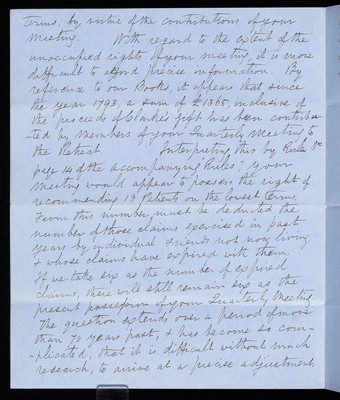 Terms, by virtue of the contributions of your
Meeting. With regard to the extent of the
unoccupied rights of your meeting, it is more
difficult to afford precise information. By
reference to our Books, it appears that since
the year 1793, a sum of £1365, inclusive of
the proceeds of Clarke's gift has been contribu-
-ted by Members of your Quarterly Meeting to
the Retreat. Interpreting this by Rule
page 14 of the accompanying "Rules" your
Meeting would appear to possess the right of
recommending 13 Patients on the lowest terms.
From this number, must be deducted the
number of those claims exercised in past
years by individual Friends not now living
& whose claims have expired with them.
If we take six as the number of expired
claims, there will still remain six as the
present possession of your Quarterly Meeting.
The question extends over a period of more
than 70 years past, & has become so com-
-plicated, that it is difficult without much
research, to arrive at a precise adjustment.